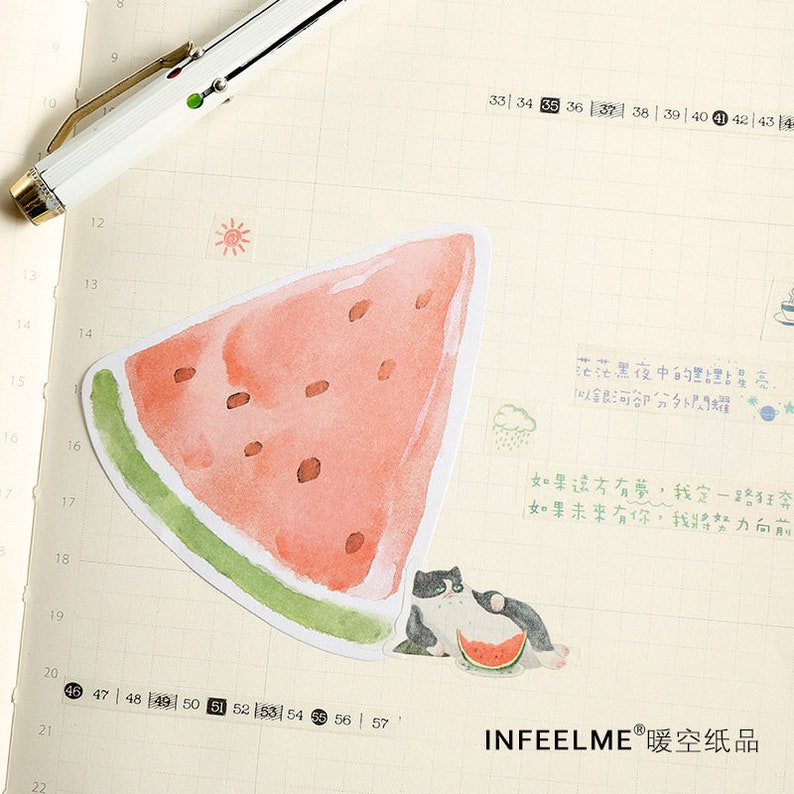 8
9
10
10
11
12
13
13
14
14
15
15
16
16
17
17
18
18
19
19
20
20
21
21
22
22
33 34 35 36 37 38 39 40 41 42 43
茫茫黑夜中的點點星亮
似銀河卻分外閃耀
如果遠方有夢，我定一路狂奔
如果未來有你，我將努力向前
46 47 48 49 50 51 52 53 54 55 56 57
INFEELME®暖空纸品